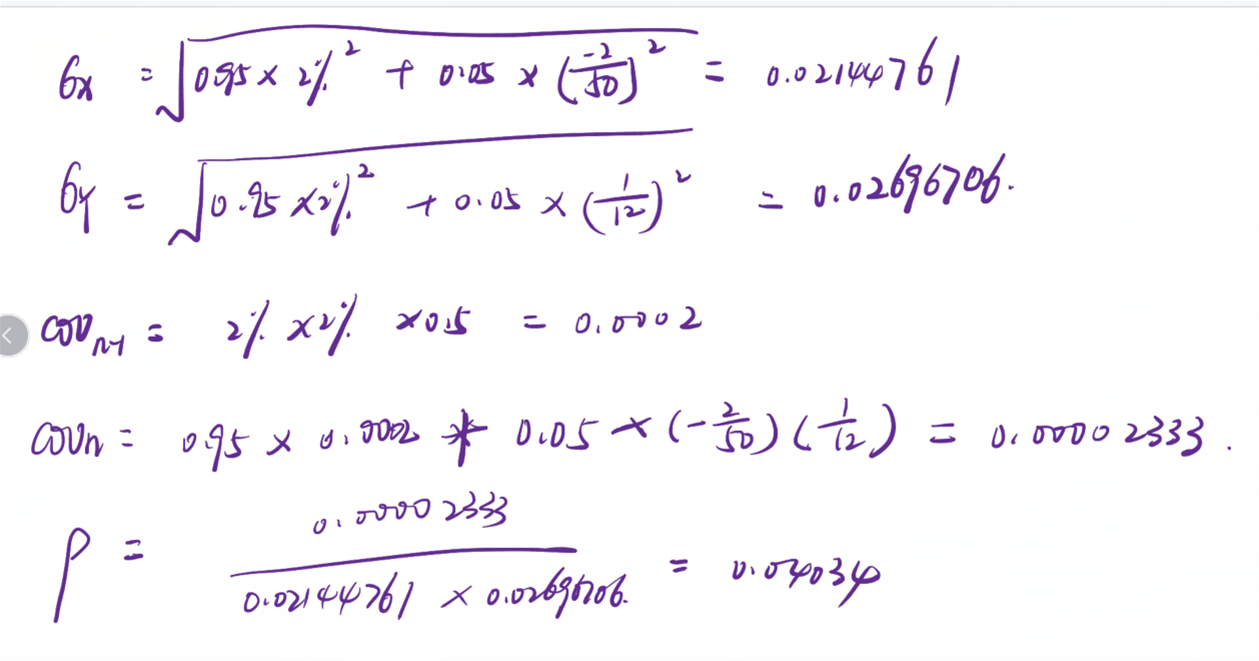 σx = √(0.95 × 2%² + 0.05 × (-2/50)²) = 0.02144761
σy = √(0.95 × 2%² + 0.05 × (1/12)²) = 0.02696706.
COVn-1 = 2% × 2% × 0.5 = 0.0002
COVn = 0.95 × 0.0002 + 0.05 × (-2/50)(1/12) = 0.00002333.
ρ = 0.00002333 / (0.02144761 × 0.02696706.) = 0.04034